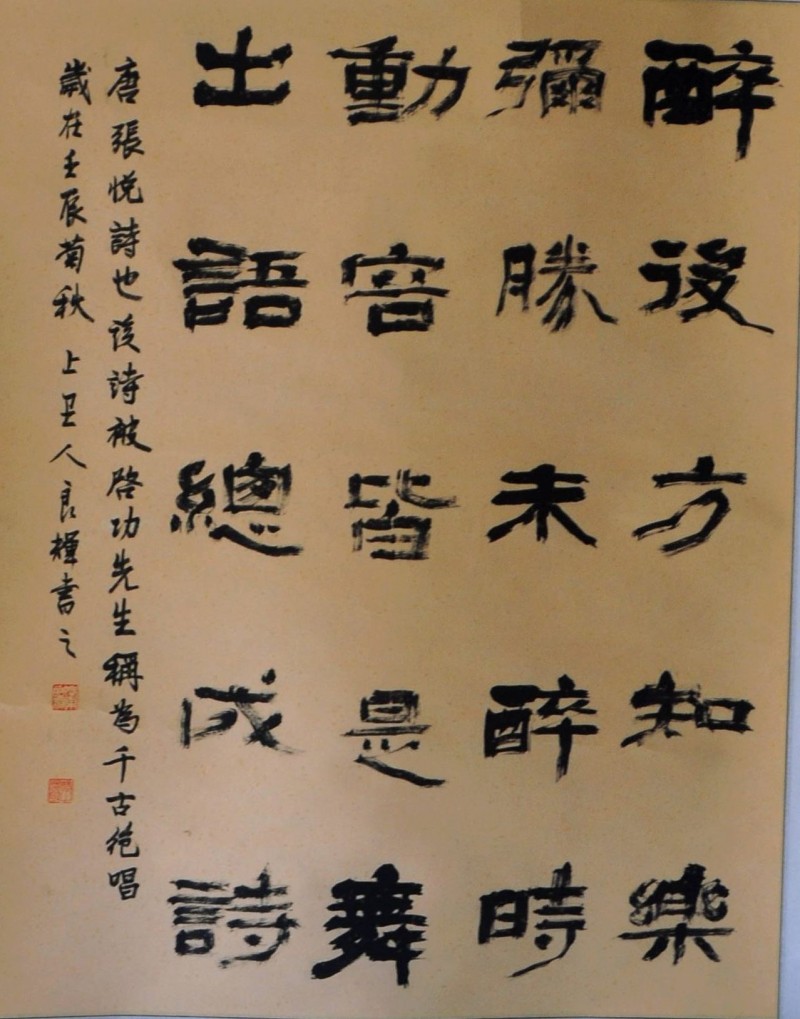 醉後方知樂
彌勝未醉時
動容皆是舞
出語總成詩
唐張悦詩也後詩被啓功先生稱為千古絶唱
歲在壬辰菊秋上丑人良輝書之